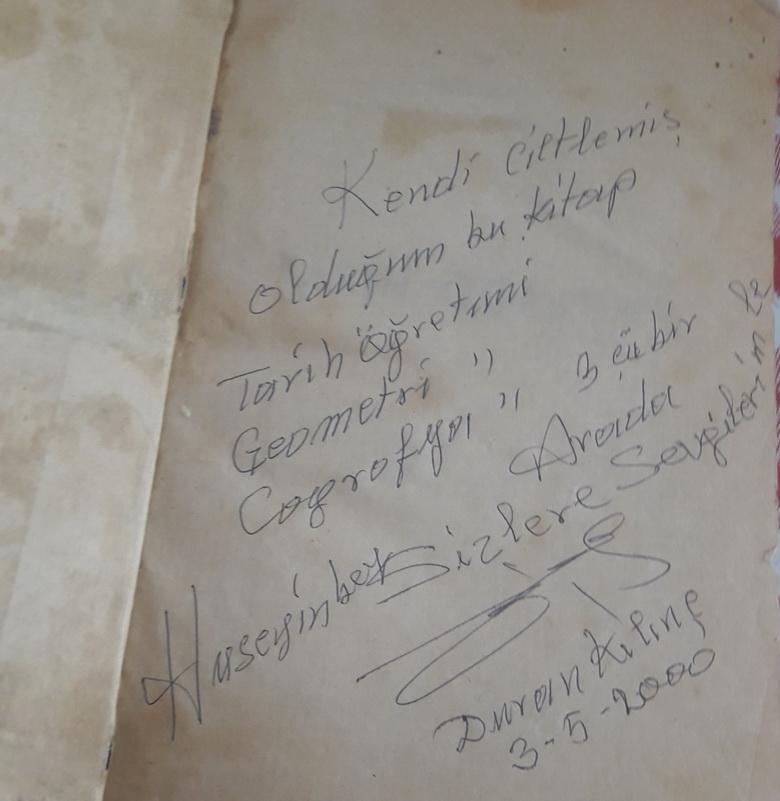 Kendi Ciltlemiş
olduğum bu kitap
Tarih Öğretimi
Geometri "
Coğrafya " 3 çü bir
Arada
Huseyinbey Sizlere Sevgilerimle
Duran Kılınç
3-5-2000